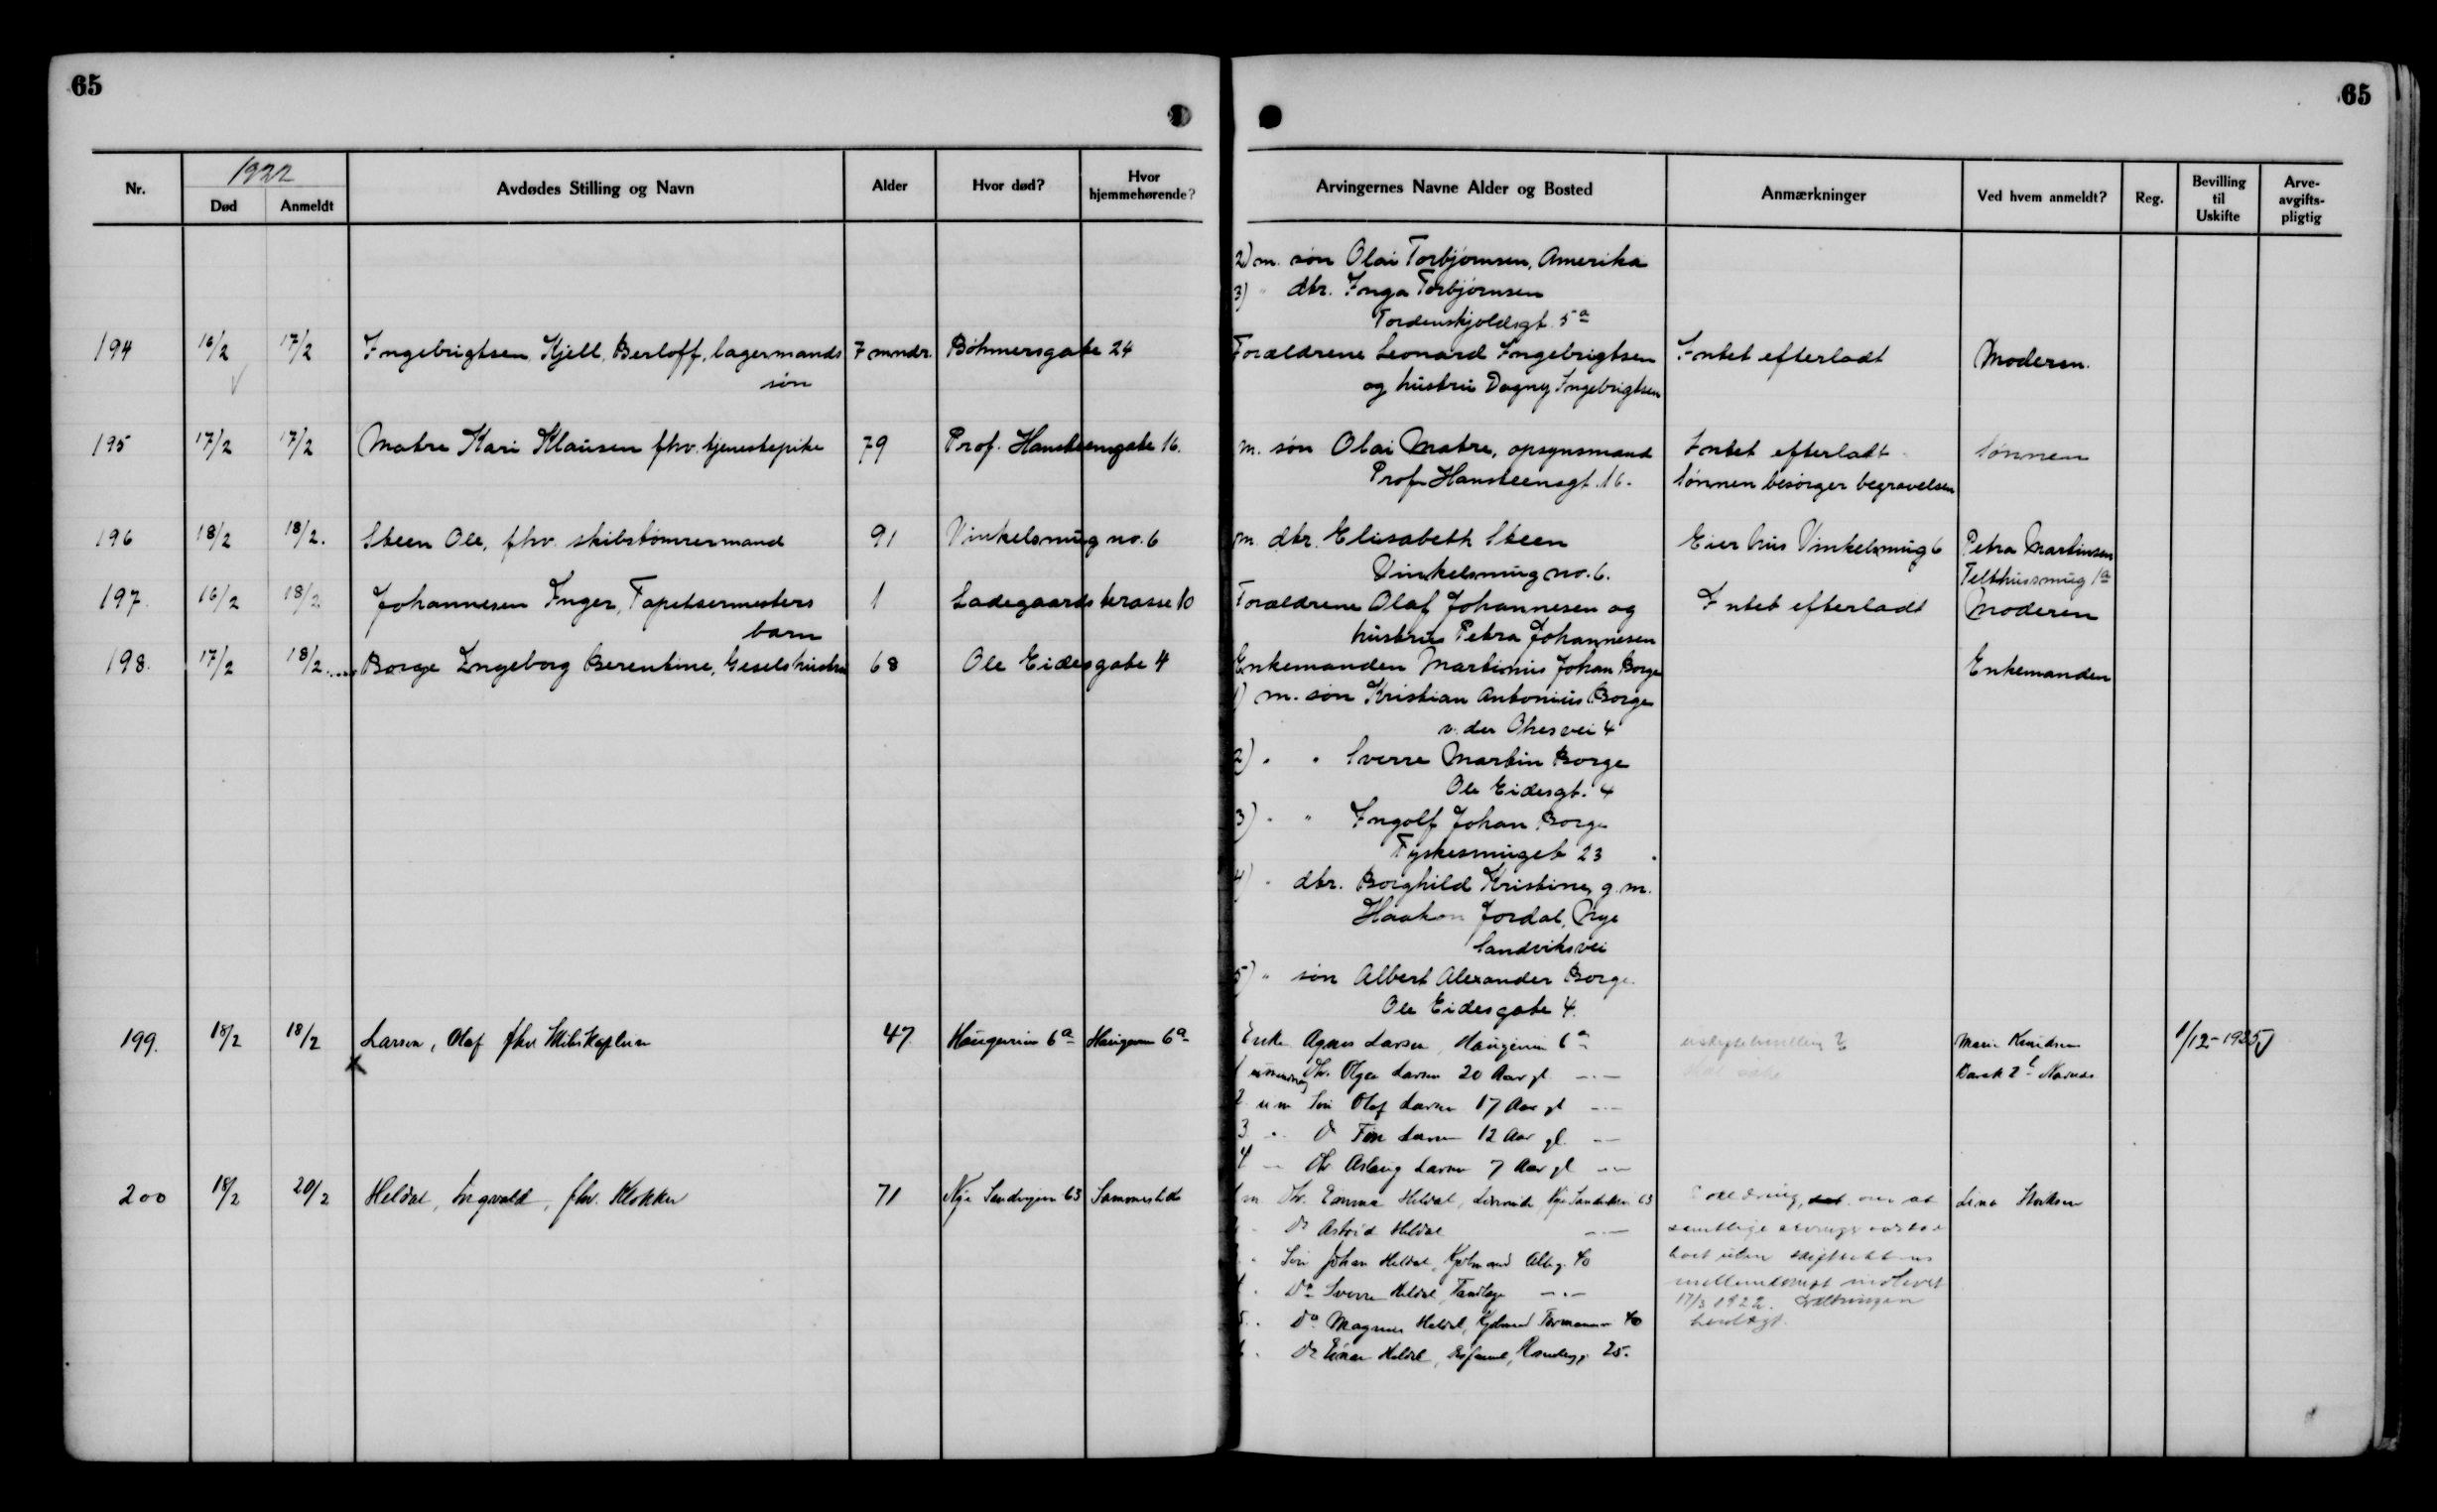 65
65
1922
Nr.
Død
Anmeldt
Avdødes Stilling og Navn
Alder
Hvor død?
Hvor hjemmehørende?
Arvingernes Navne Alder og Bosted
Anmærkninger
Ved hvem anmeldt?
Reg.
Bevilling til Uskifte
Arve-avgifts-pligtig
2) m. søn Olai Torbjørnsen, Amerika
3) " dtr. Inga Torbjørnsen
Tordenskjoldsgt. 5a
194 16/2 17/2 Ingebrigtsen Kjell, Berloff, lagermands 7 mndr. Böhmersgate 24 Forældrene Leonard Ingebrigtsen Intet efterladt Moderen.
søn og hustru Dagny Ingebrigtsen
195 17/2 17/2 Matre Kari Klausen fhv. tjenestepike 79 Prof. Hansteensgate 16. m. søn Olai Matre, opsynsmand Intet efterladt Sønnen
Prof. Hansteensgt. 16. Sønnen besørger begravelsen
196 18/2 18/2. Steen Ole, fhv. skibstømmermand 91 Vinkelsmug no. 6 m. dtr. Elisabeth Steen Eier hus Vinkelsmug 6 Petra Martinsen
Vinkelsmug no. 6. Telthussmug 1a
197. 16/2 18/2 Johannesen Inger, Tapetsermesters 1 Ladegaards terasse 10 Forældrene Olaf Johannesen og Intet efterladt Moderen
barn hustru Petra Johannesen
198. 17/2 18/2 Borge Ingeborg Berentine, Geselshustru 68 Ole Eidesgate 4 Enkemanden Martinius Johan Borge Enkemanden
1) m. søn Kristian Antonius Borge
v. der Ohesvei 4
2) " " Sverre Martin Borge
Ole Eidesgt. 4
3) " " Ingolf Johan Borge
Tyskesmuget 23
4) " dtr. Borghild Kristine, g. m.
Haakon Jordal, Nye
Sandviksvei
5) " søn Albert Alexander Borge.
Ole Eidesgate 4.
199. 18/2 18/2 Larsen, Olaf fhv Skibskaptein 47 Haugeveien 6a Haugeveien 6a Enke Agnes Larsen, Haugeveien 6a Marie Knudsen 1/12-1925
1 Dtr. Olga Larsen 20 Aar gl. —"—
2 um Søn Olaf Larsen 17 Aar gl —"—
3 " Do Finn Larsen 12 Aar gl. —"—
4 — Dtr Aslaug Larsen 7 Aar gl —"—
200 18/2 20/2 Heldal, Ingvald, fhv. Klokker 71 Nye Sandvigsvei 63 Sammesteds 1 m. Dtr. Emma Heldal, Lærerinde, Nye Sandviksv. 63 Erklæring, om at Lina
" Do Astrid Heldal —"— samtlige
" Søn Johan Heldal, Kjøbmand 40 uten skifterettens
" Do Sverre Heldal, Tandlæge —"— mellemkomst indlevert
17/3 1922. Erklæringen
5 " Do Magnus Heldal, Kjøbmand 40
6 " Do Einar Heldal, 25.